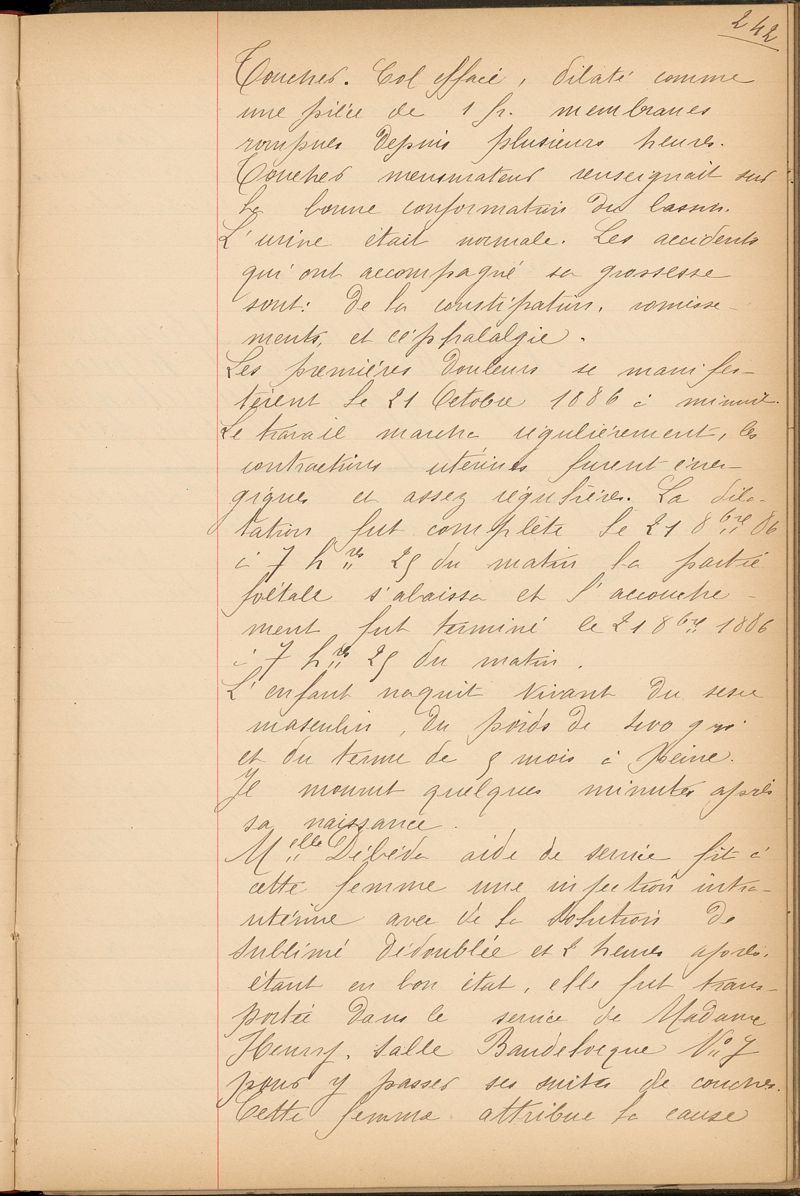 242
Toucher. Col effacé, dilaté comme
une pièce de 1 fr. membranes
rompues depuis plusieurs heures.
Toucher mensurateur renseignait sur
la bonne conformation du bassin.
L'urine était normale. Les accidents
qui ont accompagné sa grossesse
sont: De la constipation, vomisse-
ments, et céphalalgie.
Les premières douleurs se manifes-
tèrent le 21 Octobre 1886 à minuit.
Le travail marcha régulièrement, les
contractions utérines furent éner-
giques et assez régulières. La dila-
tation fut complète le 21 8bre 86
à 7 hres 25 du matin la partie
foétale s'abaissa et l'accouche-
ment fut terminé le 21 8bre 1886
à 7 hres 25 du matin.
L'enfant naquit vivant du sexe
masculin, du poids de grs.
et du terme de 5 mois à peine.
Il mourut quelques minutes après
sa naissance.
Melle Débéda aide de service fit à
cette femme une injection intra-
utérine avec de la solution de
sublimé dédoublée et 2 heures après,
étant en bon état, elle fut trans-
portée dans le service de Madame
Henry, salle Baudelocque No 7
pour y passer ses suites de couches.
Cette femme attribue la cause